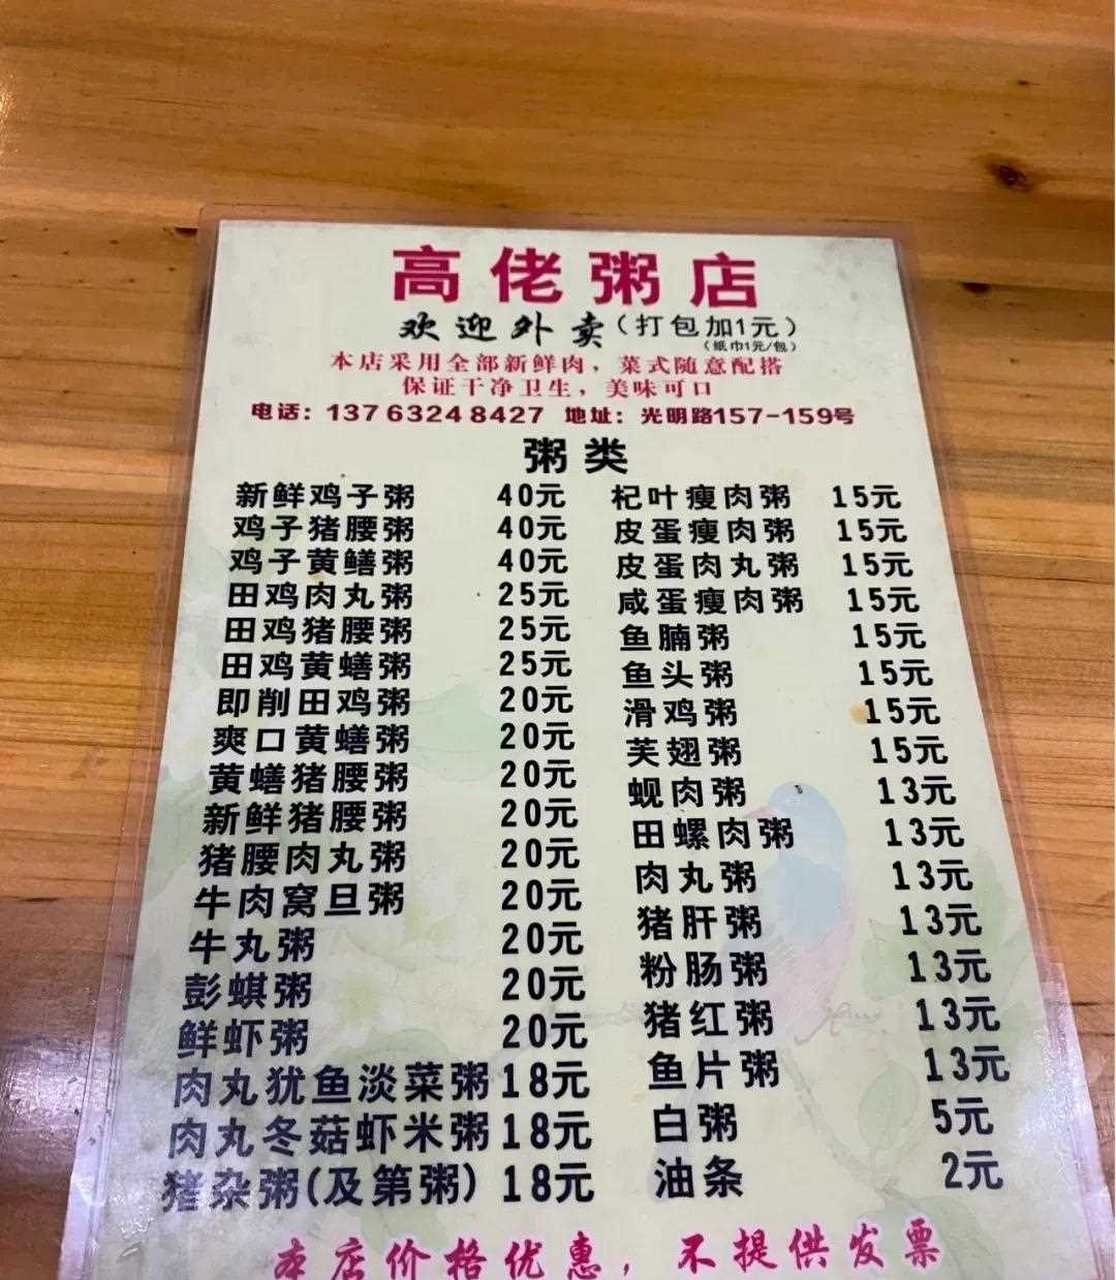 高佬粥店
欢迎外卖(打包加1元)
(纸巾1元/包)
本店采用全部新鲜肉，菜式随意配搭
保证干净卫生，美味可口
电话：13763248427 地址：光明路157-159号
粥类
新鲜鸡子粥 40元 杞叶瘦肉粥 15元
鸡子猪腰粥 40元 皮蛋瘦肉粥 15元
鸡子黄鳝粥 40元 皮蛋肉丸粥 15元
田鸡肉丸粥 25元 咸蛋瘦肉粥 15元
田鸡猪腰粥 25元 鱼腩粥 15元
田鸡黄蟮粥 25元 鱼头粥 15元
即削田鸡粥 20元 滑鸡粥 15元
爽口黄蟮粥 20元 芙翅粥 15元
黄蟮猪腰粥 20元 蚬肉粥 13元
新鲜猪腰粥 20元 田螺肉粥 13元
猪腰肉丸粥 20元 肉丸粥 13元
牛肉窝旦粥 20元 猪肝粥 13元
牛丸粥 20元 粉肠粥 13元
彭蜞粥 20元 猪红粥 13元
鲜虾粥 20元 鱼片粥 13元
肉丸犹鱼淡菜粥 18元 白粥 5元
肉丸冬菇虾米粥 18元 油条 2元
猪杂粥(及第粥) 18元
本店价格优惠，不提供发票